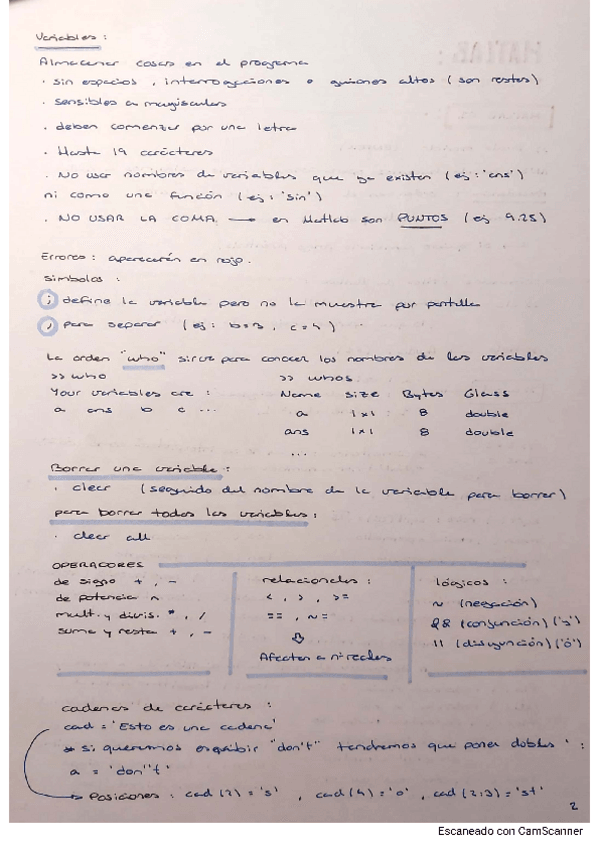 Variables :
Almacenar cosas en el programa
· sin espacios , interrogaciones o guiones altos ( son restas )
· sensibles a mayúsculas
· deben comenzar por una letra
· Hasta 19 carácteres
· No usar nombres de variables que ya existen ( ej : 'ans' )
ni como una función ( ej : 'sin' )
· NO USAR LA COMA → en Matlab son PUNTOS ( ej 9.25)
Errores : aparecerán en rojo.
símbolos :
; define la variable pero no la muestra por pantalla
, para separar ( ej : b=3 , c=4 )
La orden "who" sirve para conocer los nombres de las variables
>> who
Your variables are :
a ans b c ...
>> whos
Name size Bytes Class
a 1x1 8 double
ans 1x1 8 double
...
Borrar una variable :
· clear (seguido del nombre de la variable para borrar)
para borrar todas las variables :
· clear all
OPERADORES
de signo + , -
de potencia ^
mult. y divis. * , /
suma y resta + , -
relacionales :
< , > , >=
== , ~=
⇩
Afectan a nº reales
lógicos :
~ (negación)
&& (conjunción) ('y')
|| (disyunción) ('ó')
cadenas de carácteres :
cad = 'Esto es una cadena'
* si queremos escribir "don't" tendremos que poner dobles ' :
a = 'don''t'
→ Posiciones : cad (2) = 's' , cad (4) = 'o' , cad (2:3) = 'st'
2
Escaneado con CamScanner